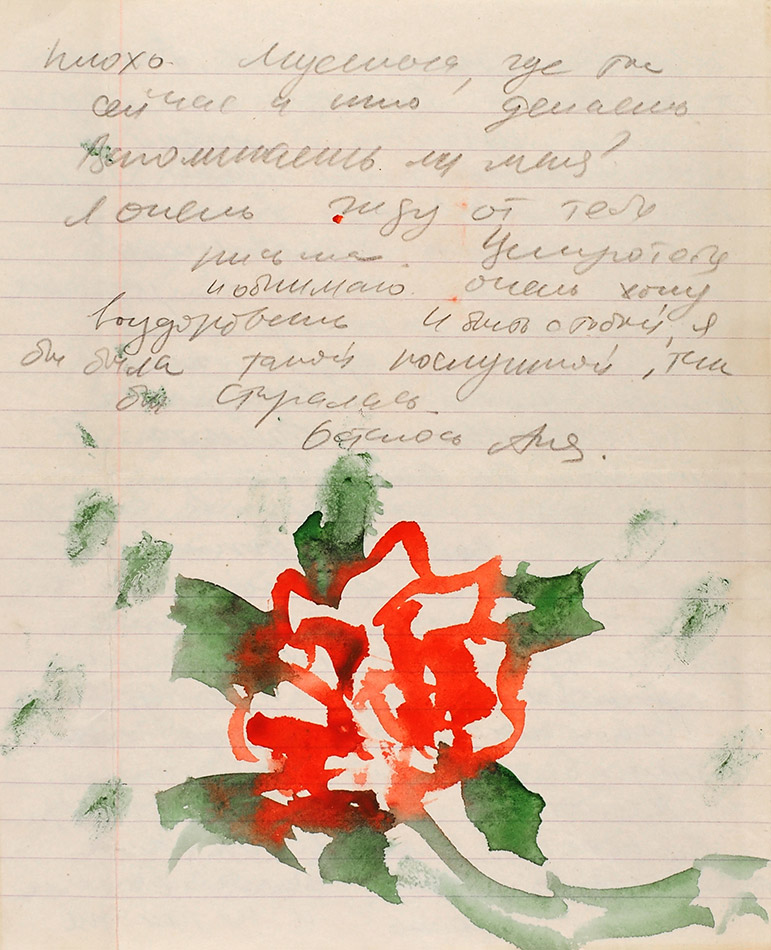 плохо. Мусенька, где ты
сейчас и что делаешь
Вспоминаешь ли меня?
Я очень жду от тебя
письма. Целую тебя
и обнимаю. очень хочу
выздороветь и быть с тобой, я
бы была такой послушной, так
бы старалась
Аня.